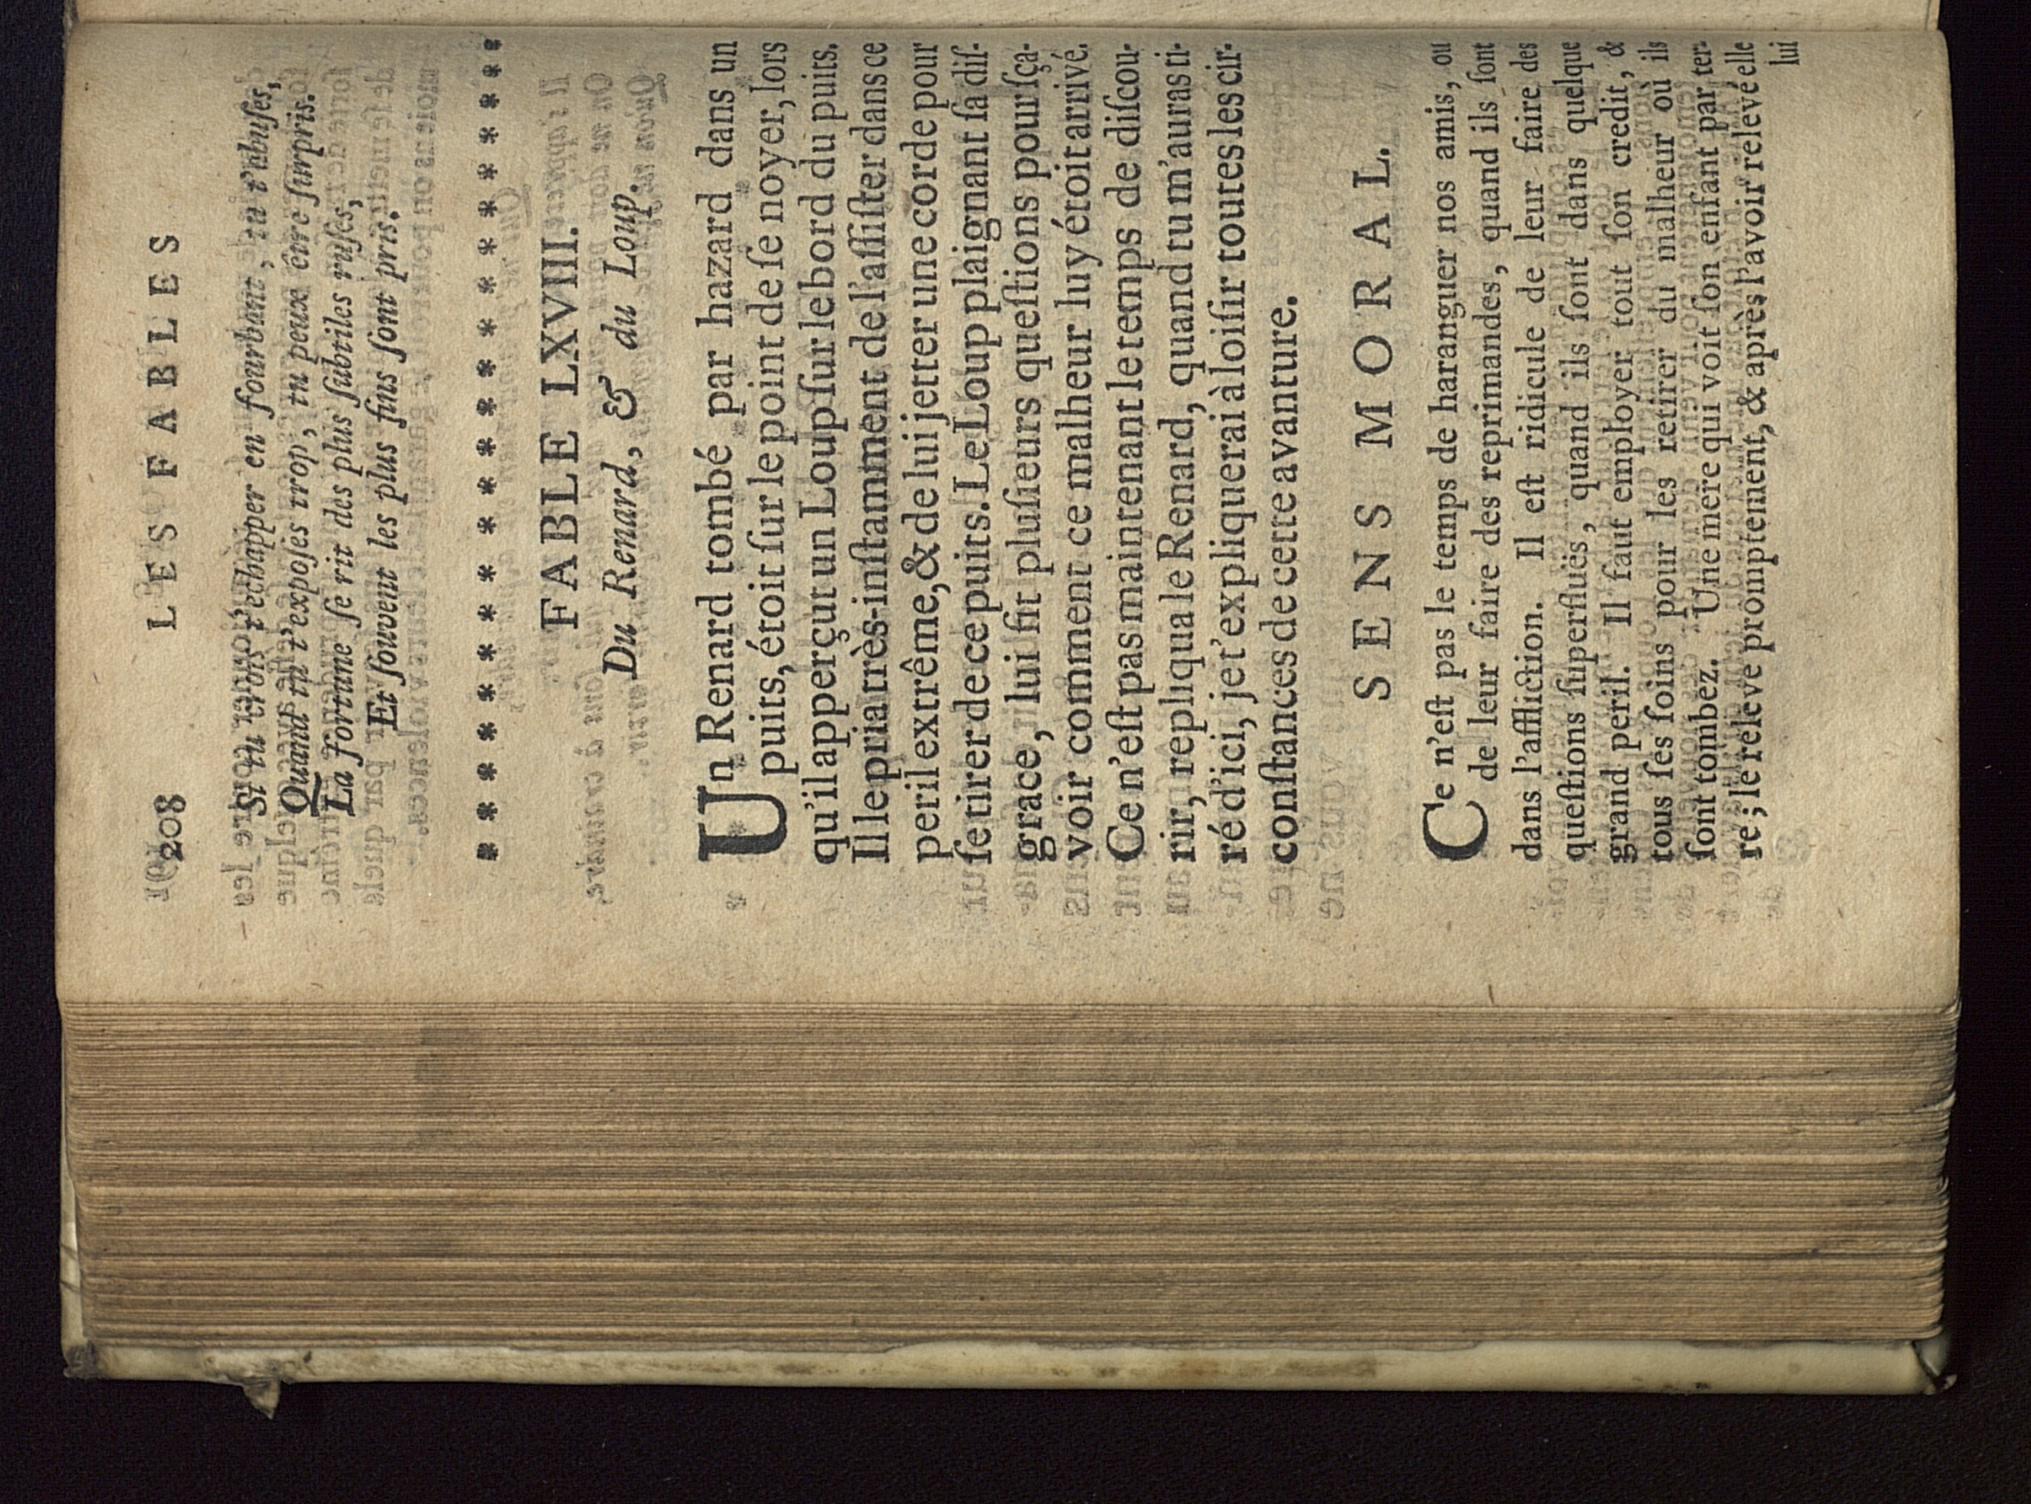 208 LES FABLES
Si tu crois t'echapper en fourbant, tu t'abuſes,
Quand tu t'expoſes trop, tu peux être ſurpris.
La fortune ſe rit des plus ſubtiles ruſes,
Et ſouvent les plus fins ſont pris.
* * * * * * * * * * * * * * * * * * * *
FABLE LXVIII.
Du Renard, & du Loup.
Un Renard tombé par hazard dans un
puits, étoit ſur le point de ſe noyer, lors
qu'il apperçut un Loup ſur le bord du puits.
Il le pria très-inſtamment de l'aſſiſter dans ce
peril extrême, & de lui jetter une corde pour
ſe tirer de ce puits. Le Loup plaignant ſa diſ-
grace, lui fit pluſieurs queſtions pour ſça-
voir comment ce malheur luy étoit arrivé.
Ce n'eſt pas maintenant le temps de diſcou-
rir, repliqua le Renard, quand tu m'auras ti-
ré d'ici, je t'expliquerai à loiſir toutes les cir-
conſtances de cette avanture.
SENS MORAL.
Ce n'eſt pas le temps de haranguer nos amis, ou
de leur faire des reprimandes, quand ils ſont
dans l'affliction. Il eſt ridicule de leur faire des
queſtions ſuperfluës, quand ils ſont dans quelque
grand peril. Il faut employer tout ſon credit, &
tous ſes ſoins pour les retirer du malheur où ils
ſont tombez. Une mere qui voit ſon enfant par ter-
re; le releve promptement, & après l'avoir relevé elle
lui